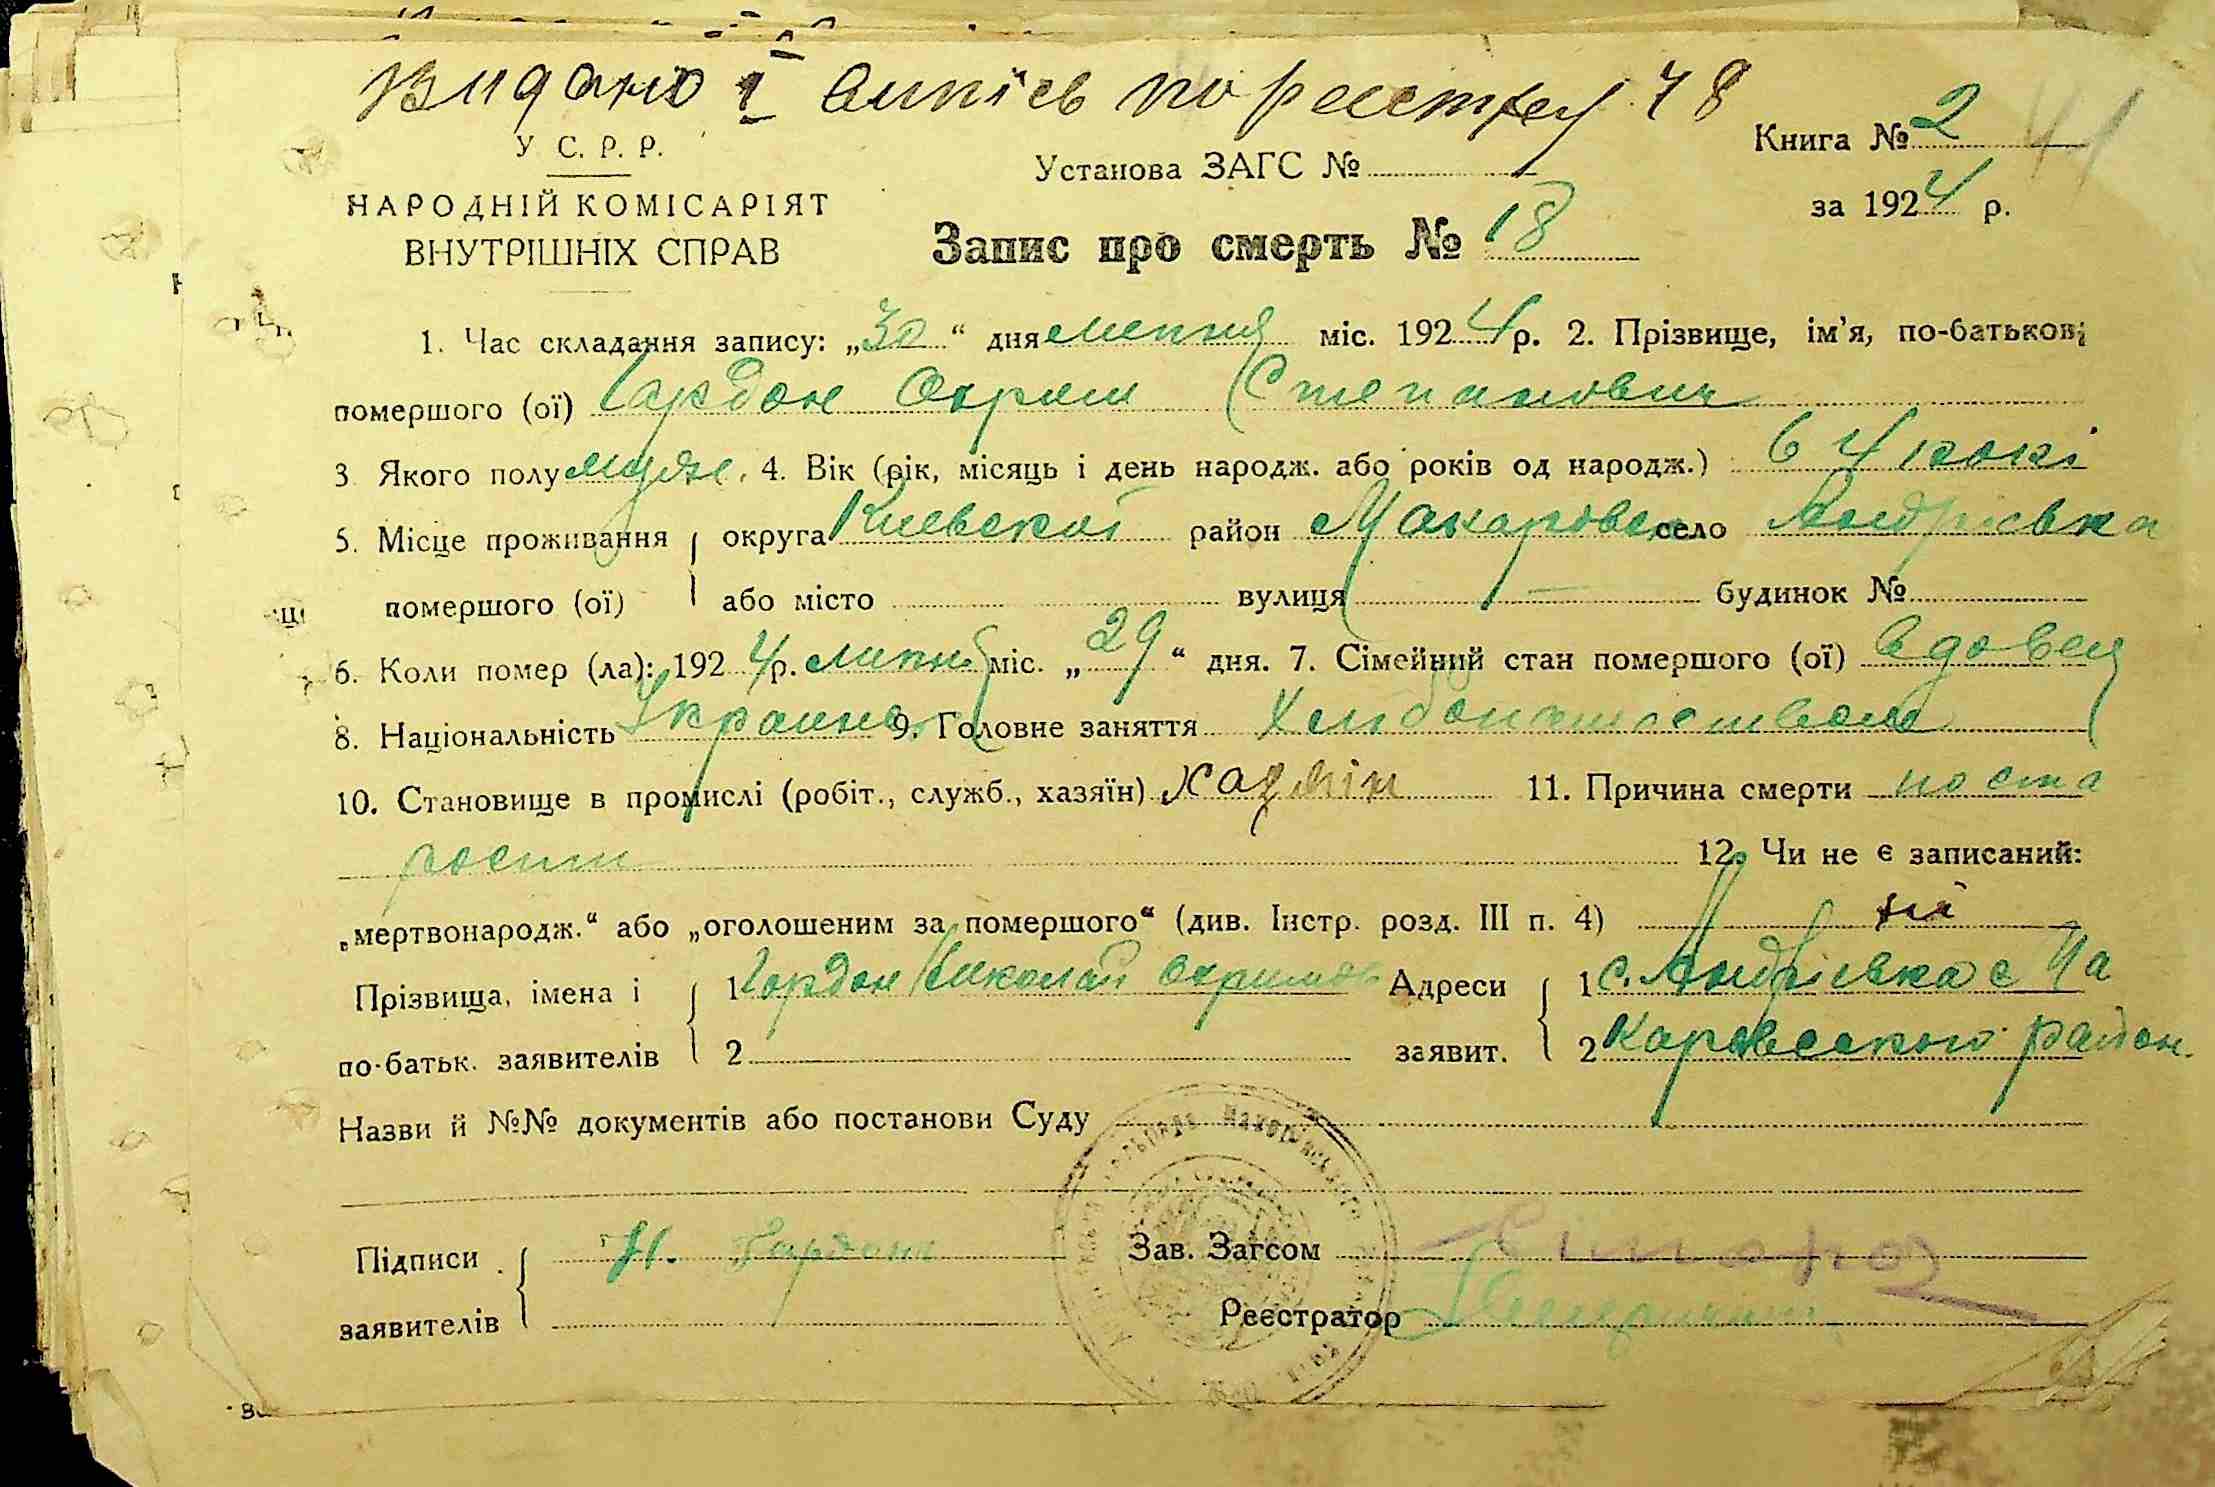 Видано I випісь по реєстру 48
У С. Р. Р.
Книга № 2 41
Установа ЗАГС №
НАРОДНІЙ КОМІСАРІЯТ
за 1924 р.
ВНУТРІШНІХ СПРАВ
Запис про смерть № 18
1. Час складання запису: „30“ дня липня міс. 1924 р. 2. Прізвище, ім'я, по-батькові
помершого (ої) Гордон Охрим Степанович
3 Якого полу муж. 4. Вік (рік, місяць і день народж. або років од народж.) 64 рокі
5. Місце проживання округа Киевской район Макаровск село Андріівка
помершого (ої) або місто вулиця — будинок №
6. Коли помер (ла): 1924 р. липня міс. „29“ дня. 7. Сімейний стан помершого (ої) вдовец
8. Національність Украинец 9. Головне заняття Хлибопашеством
10. Становище в промислі (робіт., служб., хазяїн) хазяін 11. Причина смерти по ста
рости 12. Чи не є записаний:
„мертвонародж.“ або „оголошеним за помершого“ (див. Інстр. розд. III п. 4) ні
Прізвища, імена і 1 Гордон Николай Охримов Адреси 1 с. Андріівка Ма
по-батьк. заявителів 2 заявит. 2 каровского район.
Назви й №№ документів або постанови Суду
Підписи Н. Гардон Зав. Загсом
заявителів Реєстратор